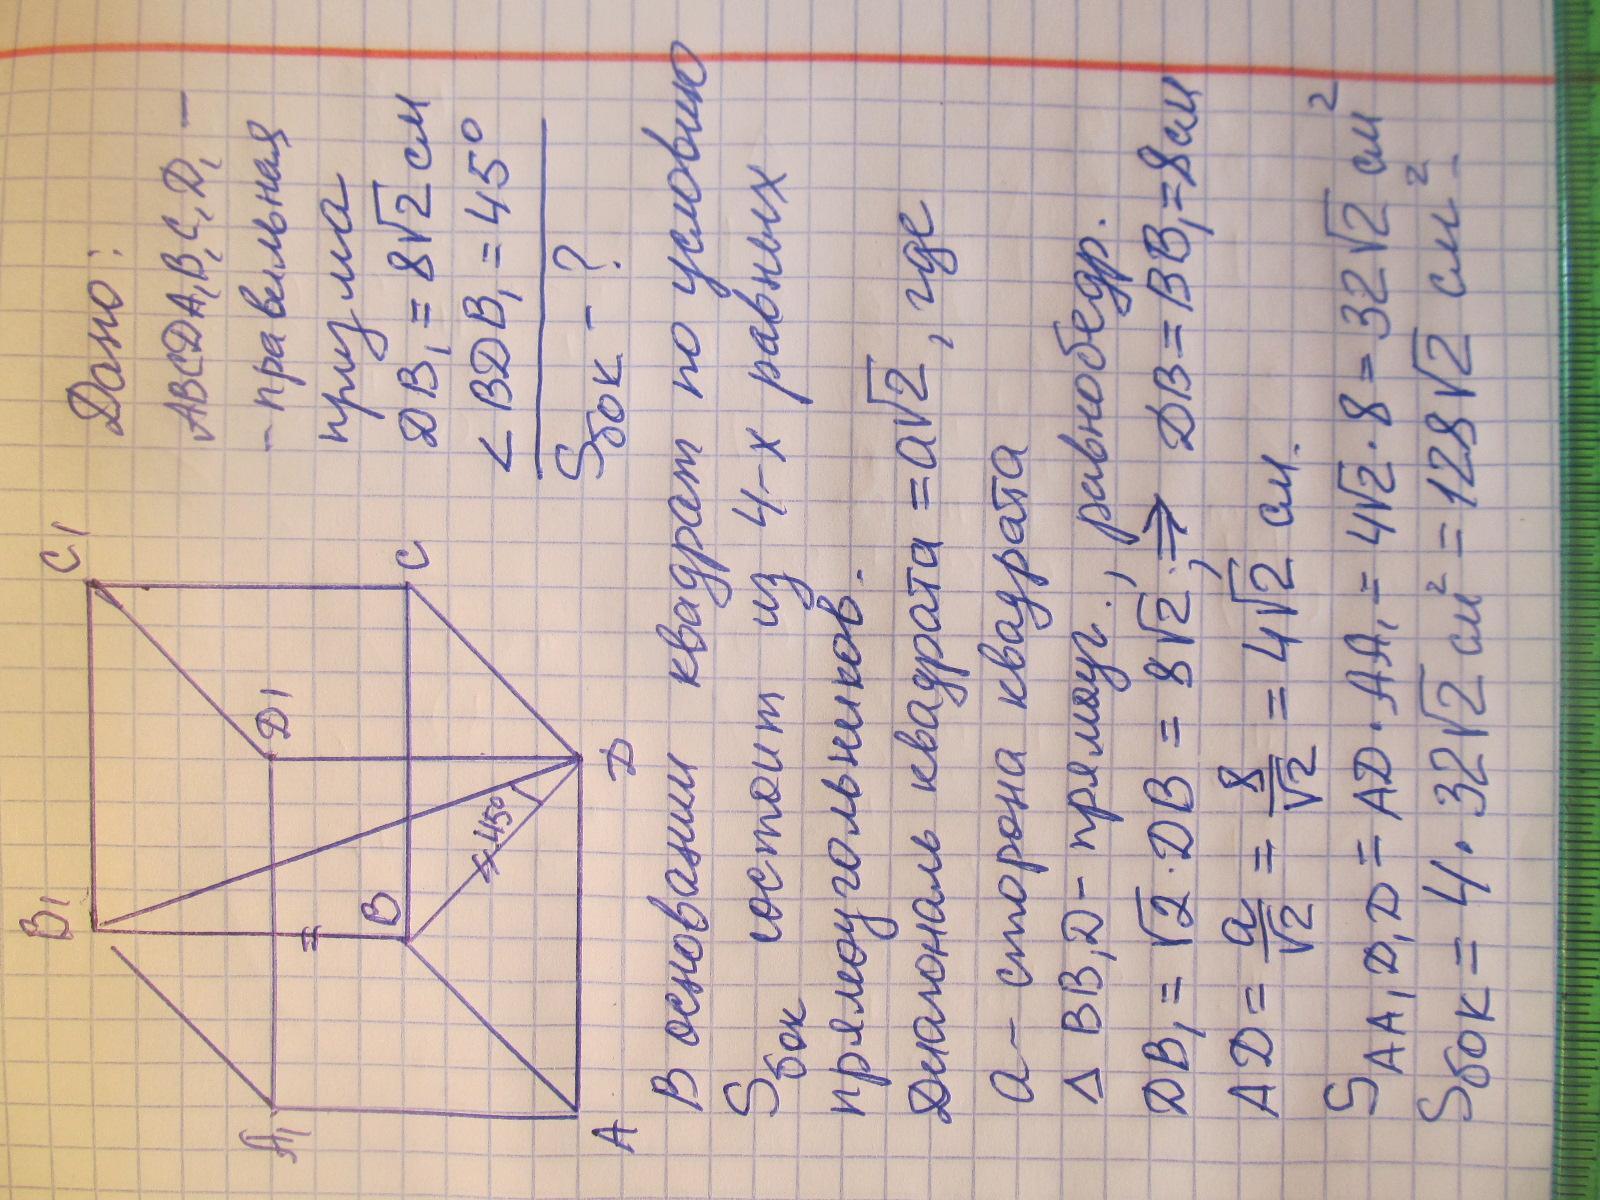 Дано:
ABCDA₁B₁C₁D₁ –
- правильная
призма
DB₁ = 8√2 см
∠BDB₁ = 45°
Sбок - ?
B₁
C₁
A₁
D₁
B
C
45°
A
D
В основании квадрат по условию
Sбок состоит из 4-х равных
прямоугольников.
Диагональ квадрата = a√2, где
a – сторона квадрата
Δ BB₁D - прямоуг., равнобедр.
DB₁ = √2 · DB = 8√2; ⇒ DB = BB₁ = 8 см
AD = a/√2 = 8/√2 = 4√2 см.
SAA₁D₁D = AD · AA₁ = 4√2 · 8 = 32√2 см²
Sбок = 4 · 32√2 см² = 128√2 см².